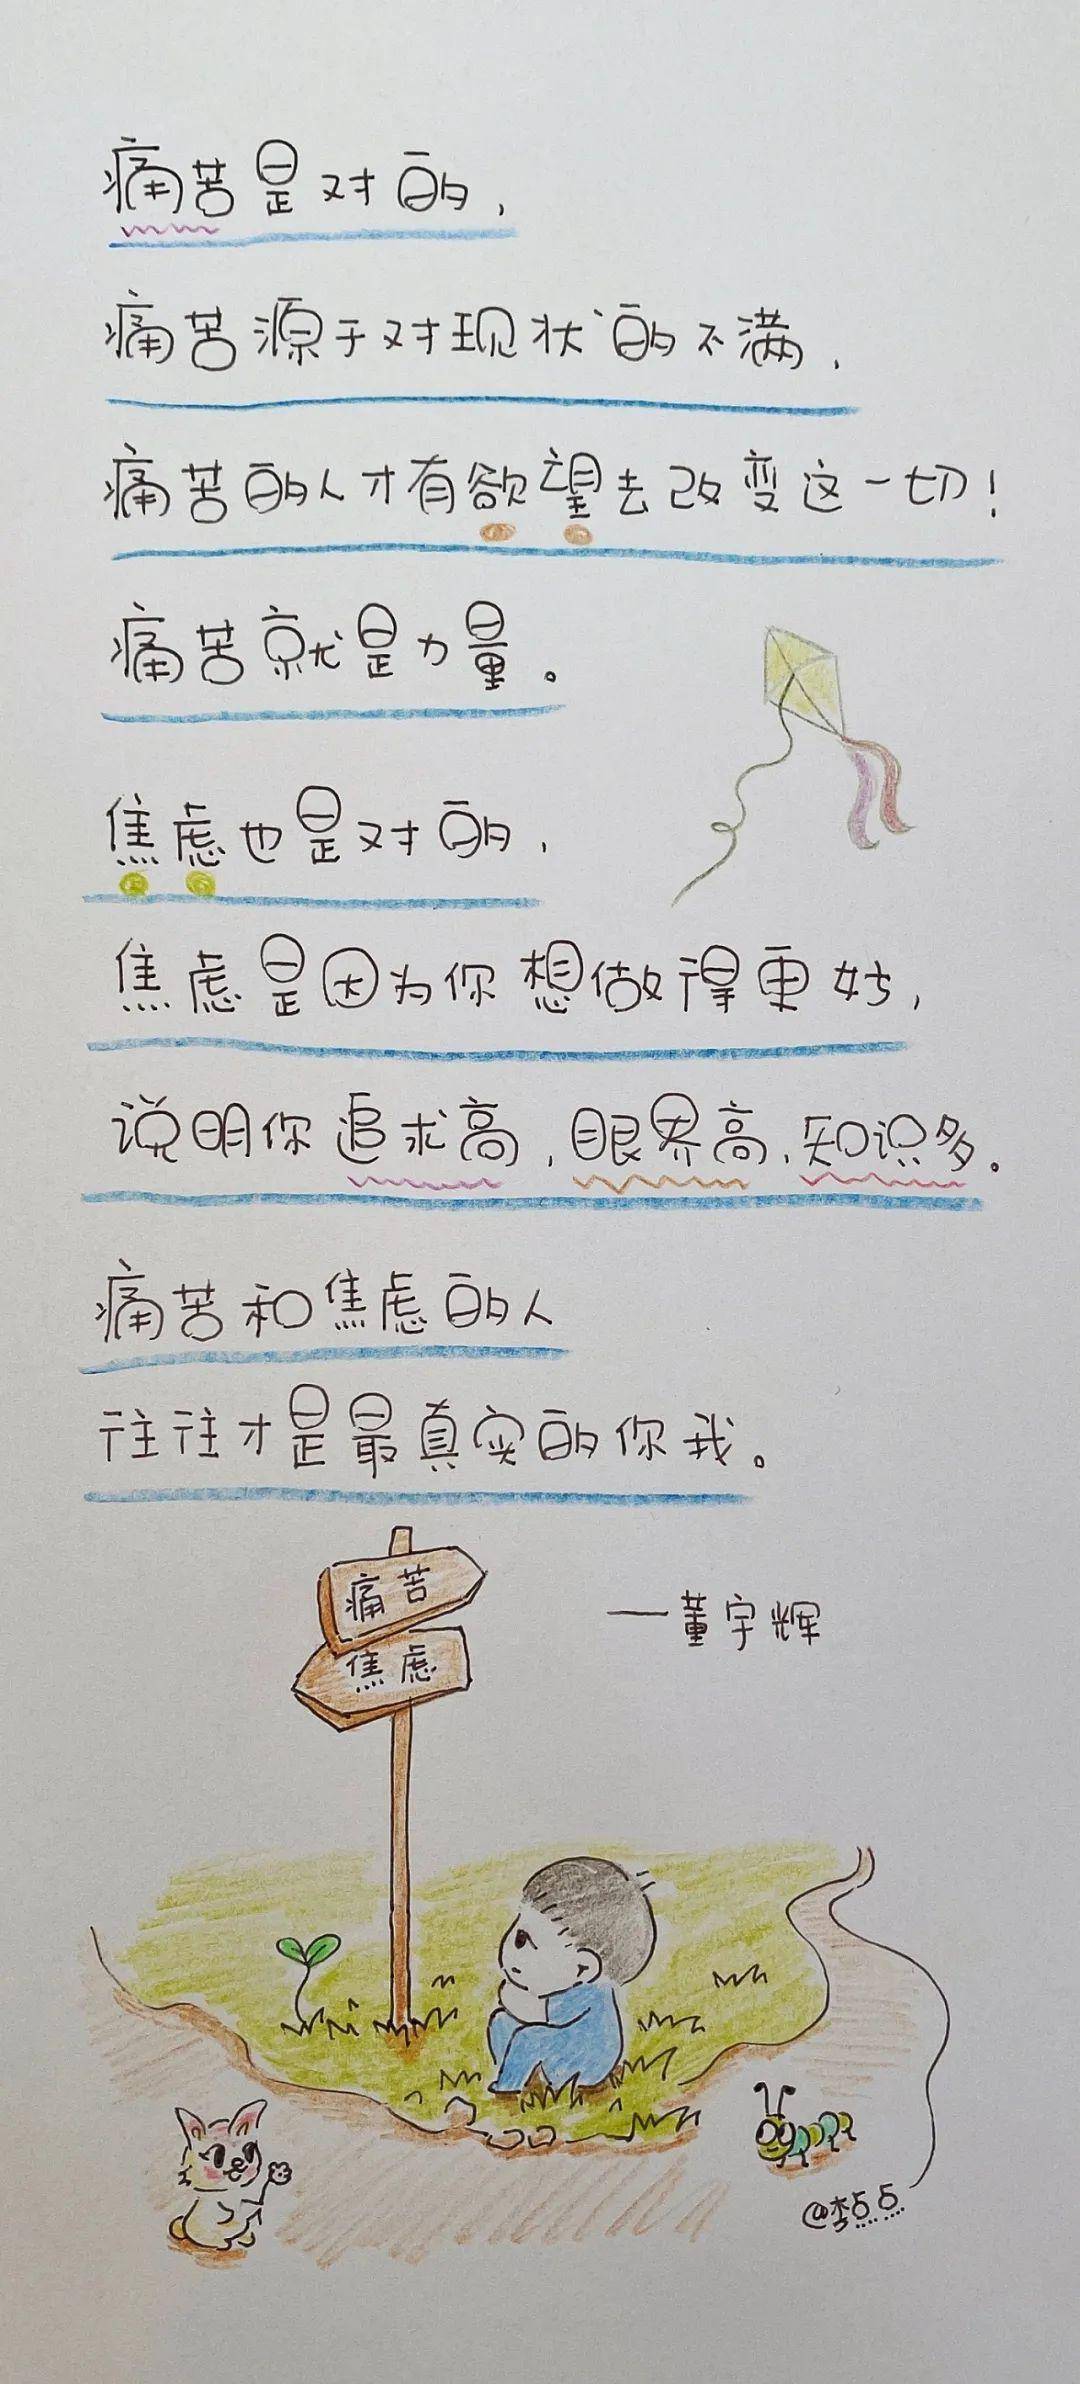 痛苦是对的，
痛苦源于对现状的不满，
痛苦的人才有欲望去改变这一切！
痛苦就是力量。
焦虑也是对的，
焦虑是因为你想做得更好，
说明你追求高，眼界高，知识多。
痛苦和焦虑的人
往往才是最真实的你我。
痛苦
一董宇辉
焦虑
@李点点